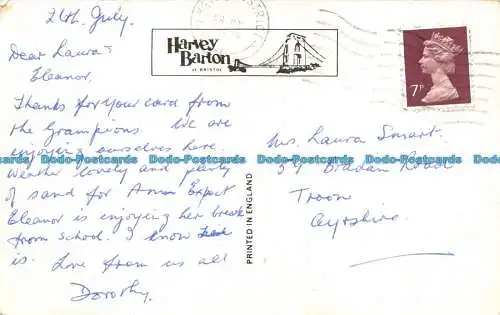 26th July.
Dear Laura &
Eleanor.
Thanks for your card from
the Grampians. We are
enjoying ourselves here.
Weather lovely and plenty
of sand for Expect
Eleanor is enjoying her break
from school. I know
is. Love from us all
Dorothy.
Harvey
Barton
OF BRISTOL
7P
PRINTED IN ENGLAND
Laura Smart.
59 Bradan Road
Troon
Ayrshire.
Dodo-Postcards Dodo-Postcards Dodo-Postcards Dodo-Postcards Dodo-Postcards